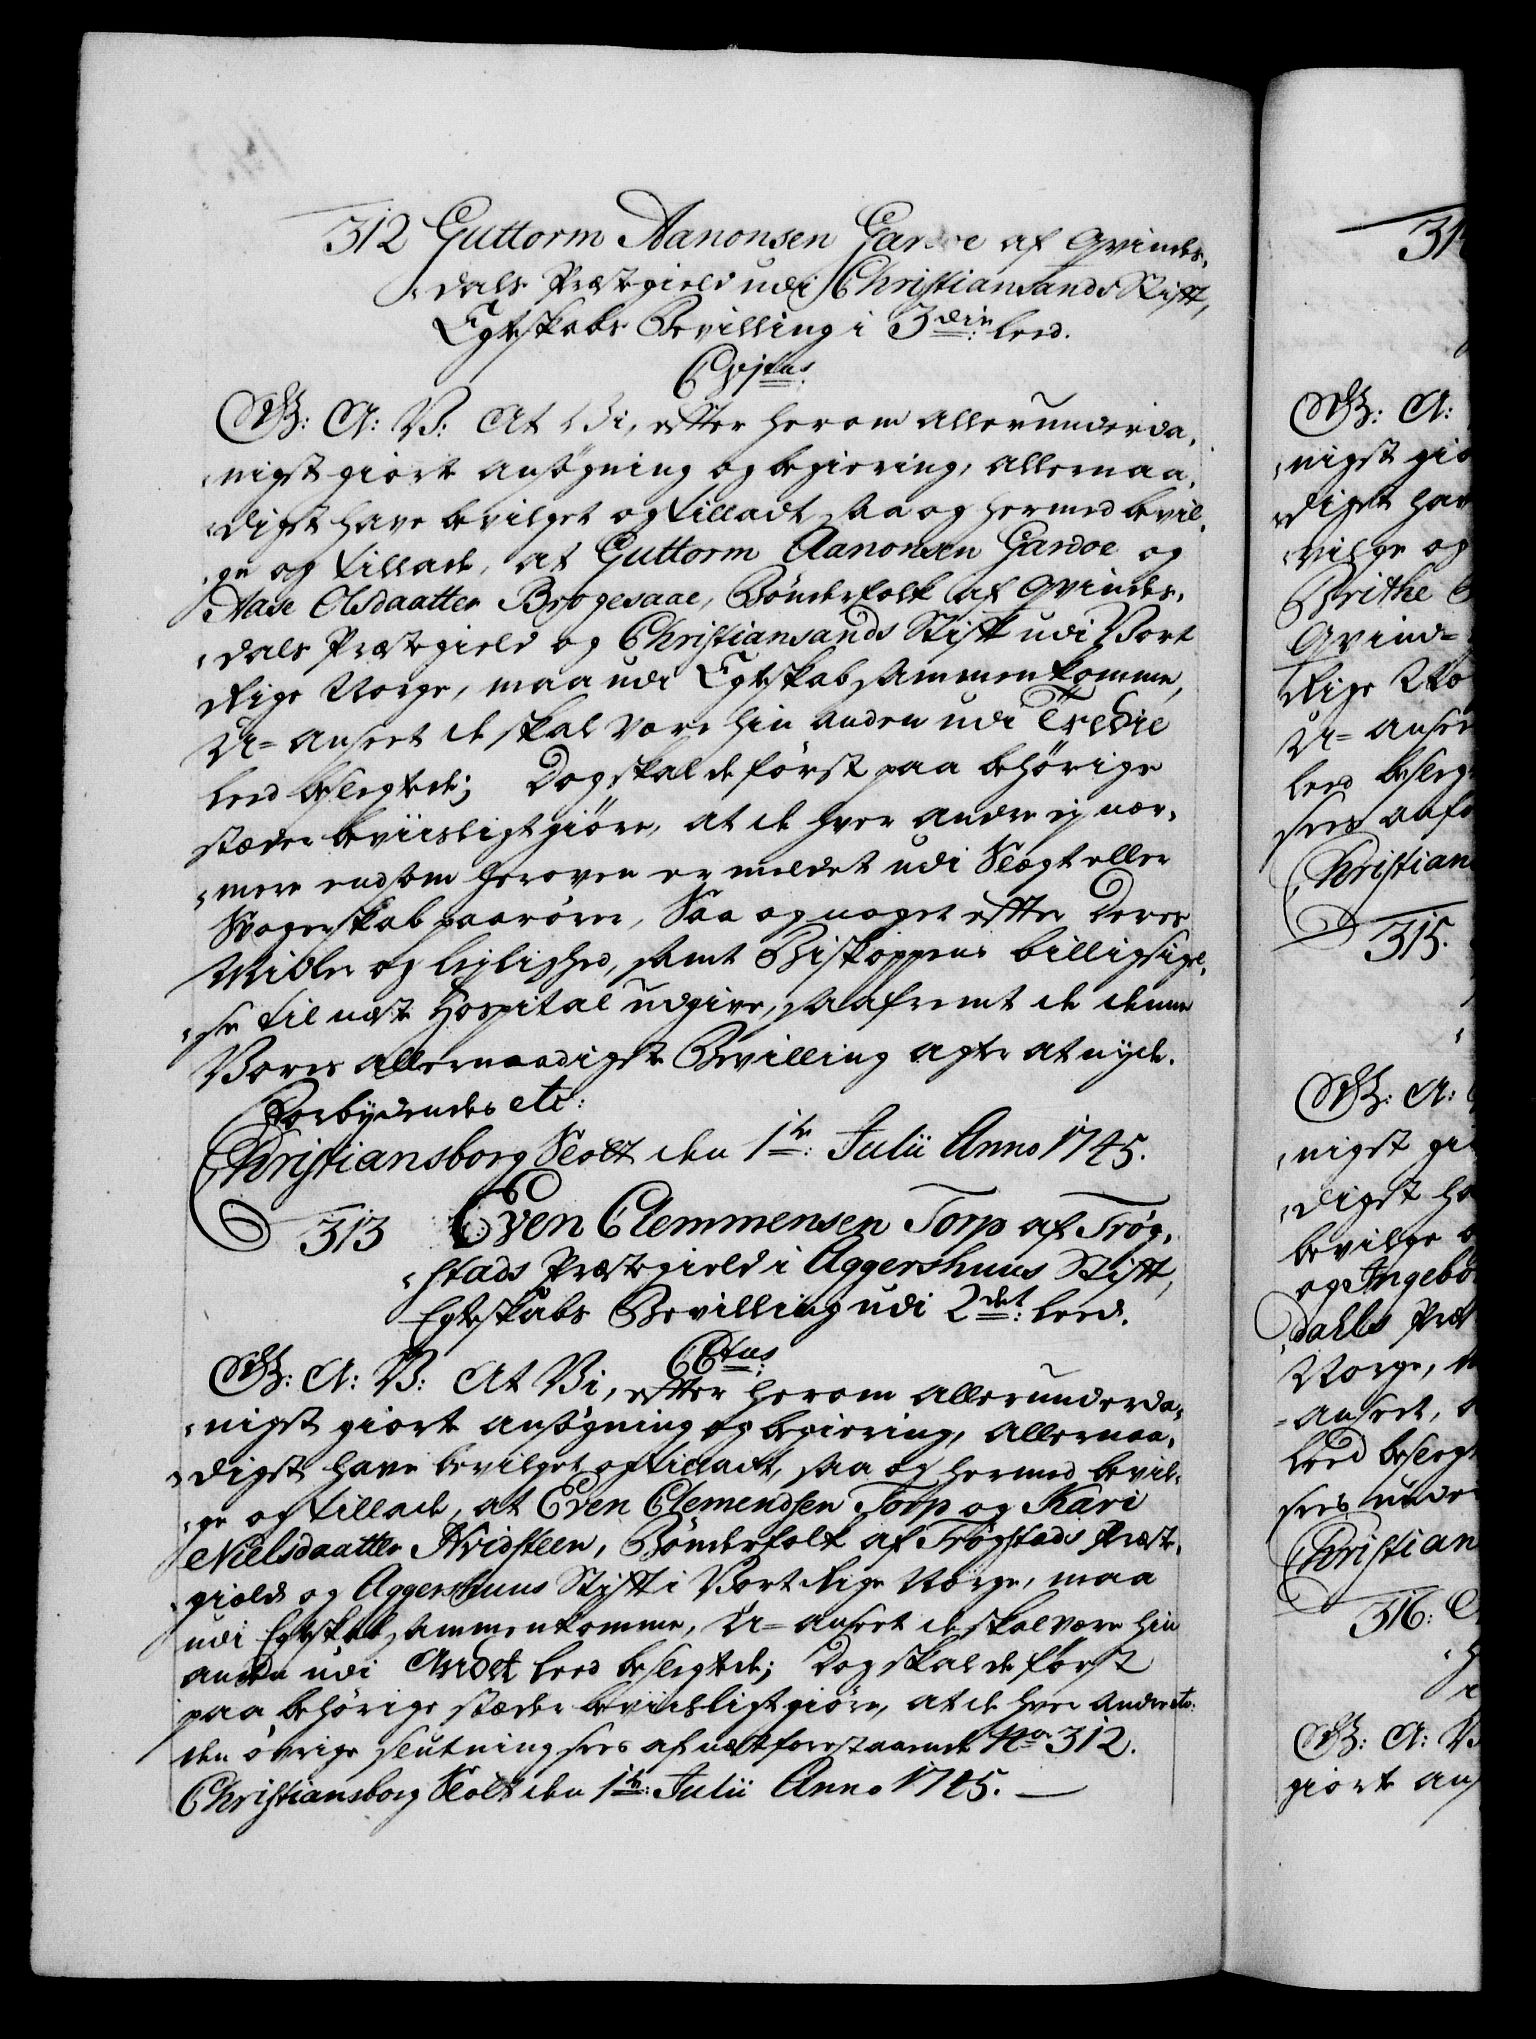 312 Guttorm Aanonsen Gardoe af Qvindes-
dals Præstegield udi Christiansands Stift,
Egteskabs Bevilling i 3die Leed.
Cujus
G: A: V: At Vi, efter herom allerunderda-
nigst giorte Ansøgning og begiering, allernaa-
digst have bevilget og tilladt, saa og hermed bevil-
ge og tillade, at Guttorm Aanonsen Gardoe og
Aase Olsdaatter Brogesaae, Bønderfolk af Qvindes-
dals Præstegield og Christiansands Stift udi Vort
Rige Norge, maa udi Egteskab sammenkomme,
U-anseet de skal være hin anden udi Tredie
Leed beslegtede; Dog skal de først paa behørige
stæder beviisligt giøre, at de hver andre ej nær-
mere end som heroven er meldet udi Slegt eller
Svogerskab paarører, Saa og noget efter Deres
Midler og leylighed, samt Biskoppens billigsigel-
se til næste Hospital udgive, saafremt de denne
Vores allernaadigste Bevilling agter at nyde.
Forbydendes etc:
Christiansborg Slott den 1te Julii Anno 1745.
313 Even Clemmensen Torp af Trøg-
stads Præstegield i Aggershuus Stift,
Egteskabs Bevilling udi 2det Leed.
Cujus
G: A: V: At Vi, efter herom allerunderda-
nigst giorte ansøgning og begiering, allernaa-
digst have bevilget og tilladt, saa og hermed bevil-
ge og tillade, at Even Clemendsen Torp og Kari
Nielsdaatter Hvidsteen, Bønderfolk af Trøgstads Præste-
gield og Aggershuus Stift i Vort Rige Norge, maa
udi Egteskab sammenkomme, U-anseet de skal være hin
anden udi Andet Leed beslegtede; Dog skal de først
paa behørige stæder beviisligt giøre, at de hver andre etc:
den øvrige slutning sees af næstforestaaende No 312.
Christiansborg Slott den 1te Julii Anno 1745.
G: A:
nigst gio
digst hav
vilge og
Brithe
Qvind-
Rige No
U-ansee
Leed beslegt
Christian
315.
G: A:
nigst gi
digst ha
bevilge o
og Ingebo
dahls Præs
Norge, m
anseet,
Leed beslegt
sees unde
Christian
316:
G: A: V
giorte ans